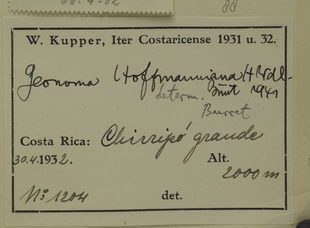 W. Kupper, Iter Costaricense 1931 u. 32.
Geonoma Hoffmanniana H Wdl.
determ. 1941
Burret
Costa Rica: Chirripó grande
30.4.1932. Alt.
2000 m
No 1204 det.